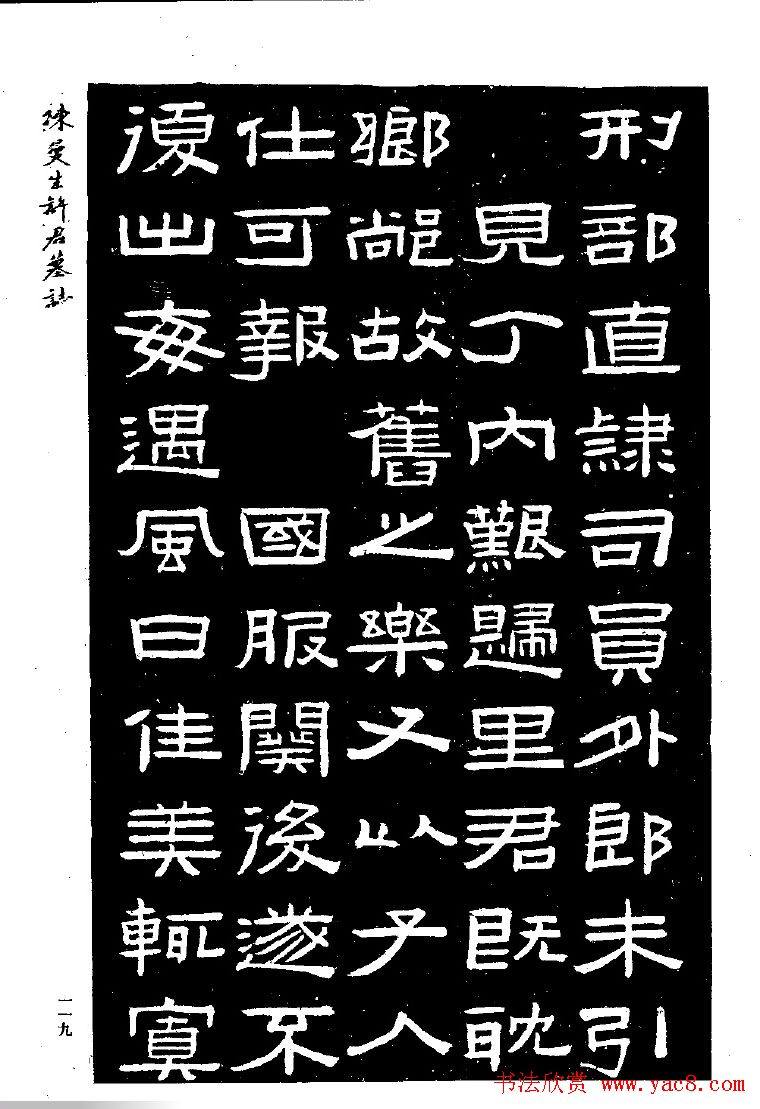 刑部直隸司員外郎未引
見丁內艱歸里君既耽
鄉䣊故舊之樂又以子人
仕可報 國服闋後遂不
復出每遇風日佳美輒賓
陳曼生許君墓誌
一一九
书法欣赏 www.yac8.com